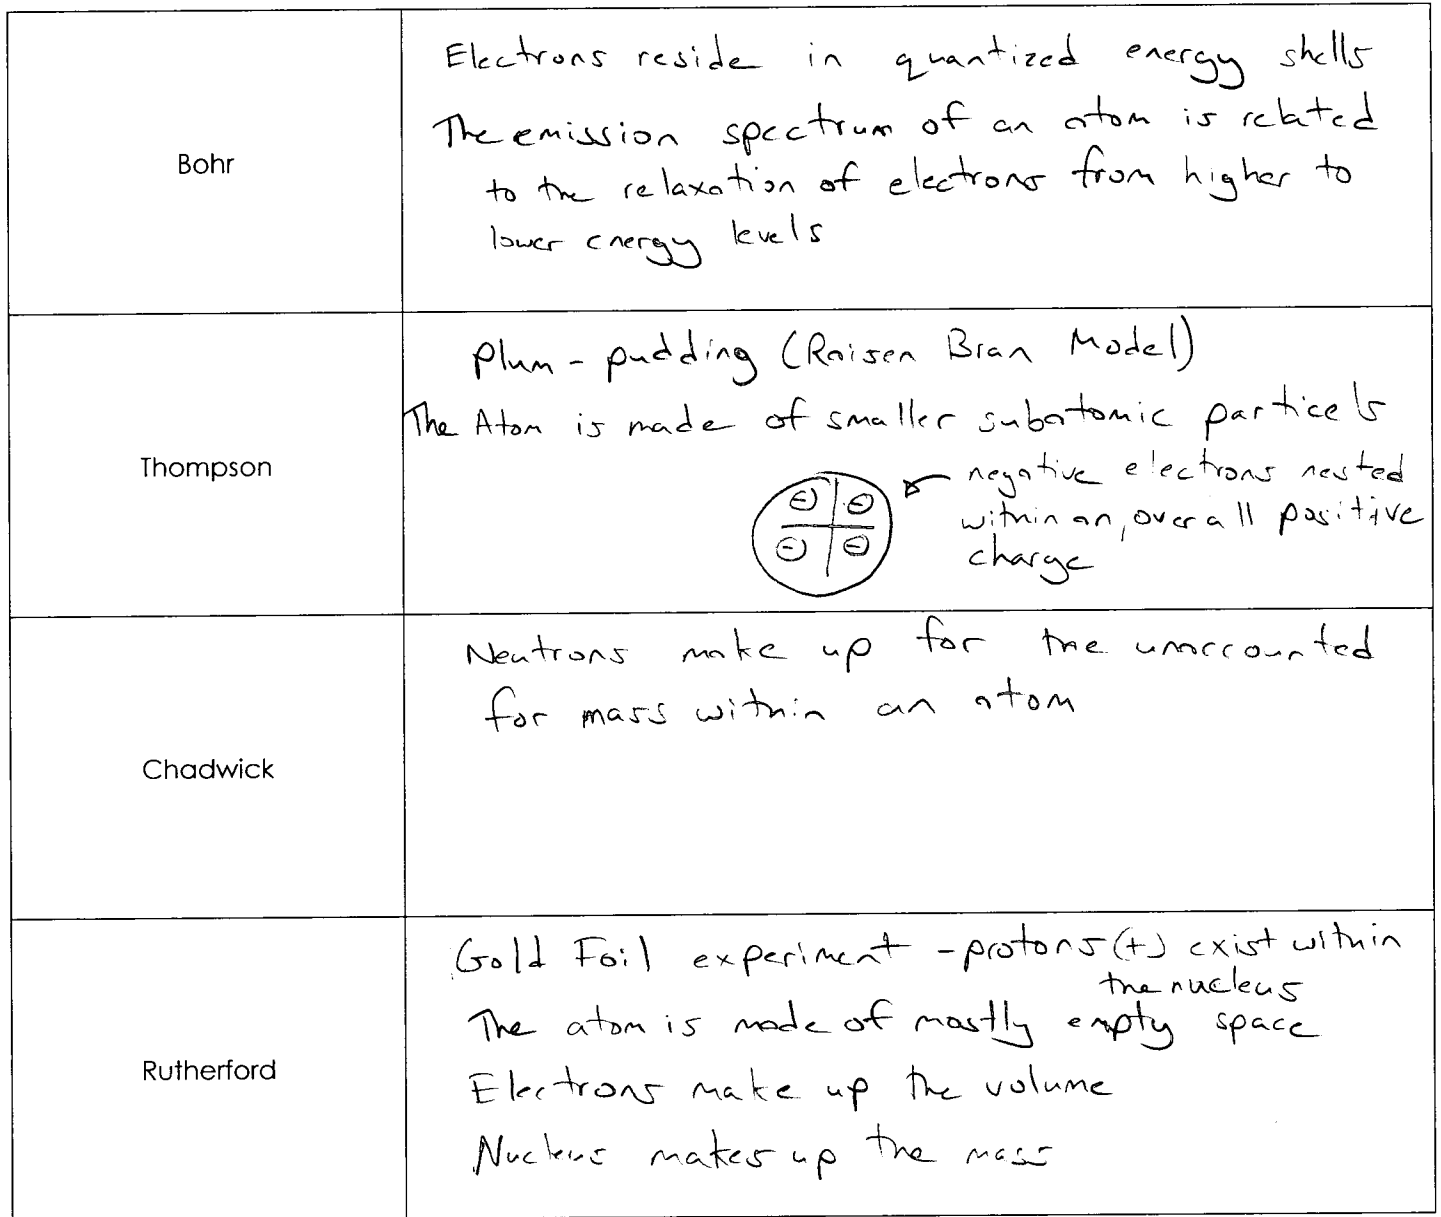 Bohr
Electrons reside in quantized energy shells
The emission spectrum of an atom is related
to the relaxation of electrons from higher to
lower energy levels
Thompson
Plum - pudding (Raisen Bran Model)
The Atom is made of smaller subatomic particels
negative electrons nested
within an, overall positive
charge
⊖ ⊖
⊖ ⊖
Chadwick
Neutrons make up for the unaccounted
for mass within an atom
Rutherford
Gold Foil experiment - protons (+) exist within
the nucleus
The atom is made of mostly empty space
Electrons make up the volume
Nucleus makes up the mass